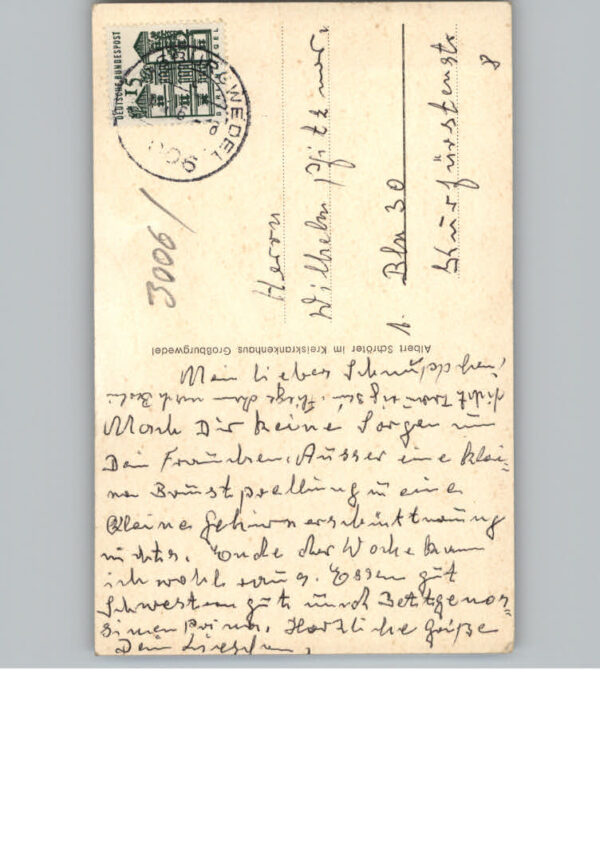 DEUTSCHE BUNDESPOST
15
3006/
Herrn
Wilhelm Pfitzner
1. Bln 30
Kurfürstenstr
8
Albert Schröter im Kreiskrankenhaus Großburgwedel
Mein lieber Schnudelchen,
nicht traurig sein, fliege dann nach Berlin
Mach Dir keine Sorgen um
Dein Frauchen. Ausser eine klei-
ne Brustprellung u eine
kleine Gehirnerschüttnung
nichts. Ende der Woche kann
ich wohl raus. Essen gut
Schwestern gut und Bettgenos-
sinen prima. Herzliche Grüße
Dein Lieschen.